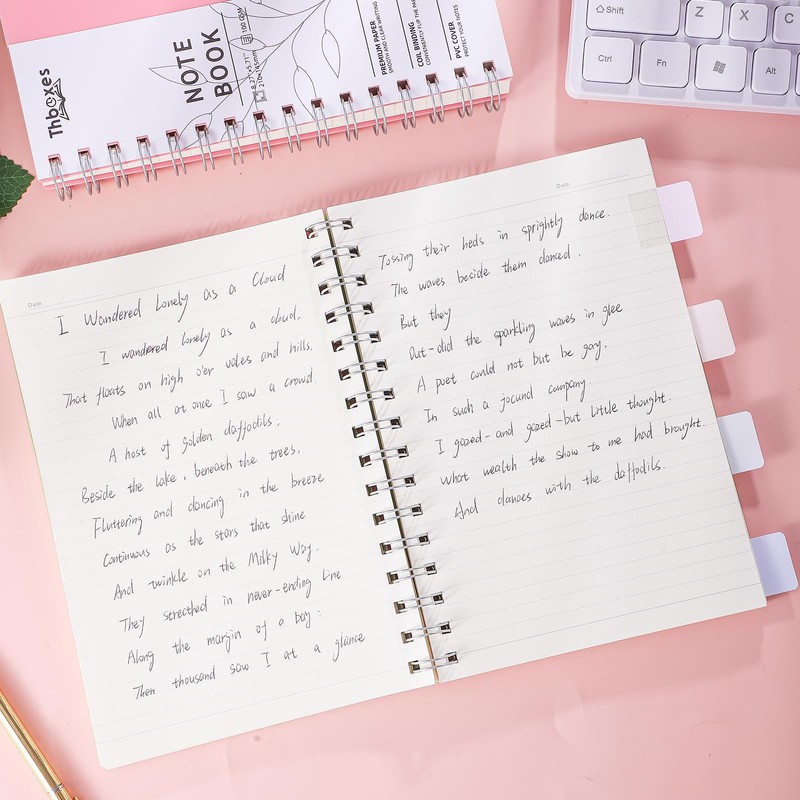 Thboxes
NOTE
BOOK
8.27"×5.71"
210×145mm
100 GSM
PREMIUM PAPER
SMOOTH AND CLEAR WRITING
COIL BINDING
CONVENIENTLY FLIP THE
PVC COVER
PROTECT YOUR NOTES
Shift
Z
X
C
Ctrl
Fn
Alt
Date
I Wandered Lonely as a Cloud
I wandered lonely as a cloud.
That floats on high o'er vales and hills.
When all at once I saw a crowd.
A host of golden daffodils;
Beside the lake, beneath the trees,
Fluttering and dancing in the breeze
Continuous as the stars that shine
And twinkle on the Milky Way.
They stretched in never-ending line
Along the margin of a bay:
Then thousand saw I at a glance
Date
Tossing their heds in sprightly dance.
The waves beside them danced.
But they
Out-did the sparkling waves in glee
A poet could not but be gay.
In such a jocund company.
I gazed-and gazed-but little thought.
What wealth the show to me had brought.
And dances with the daffodils.